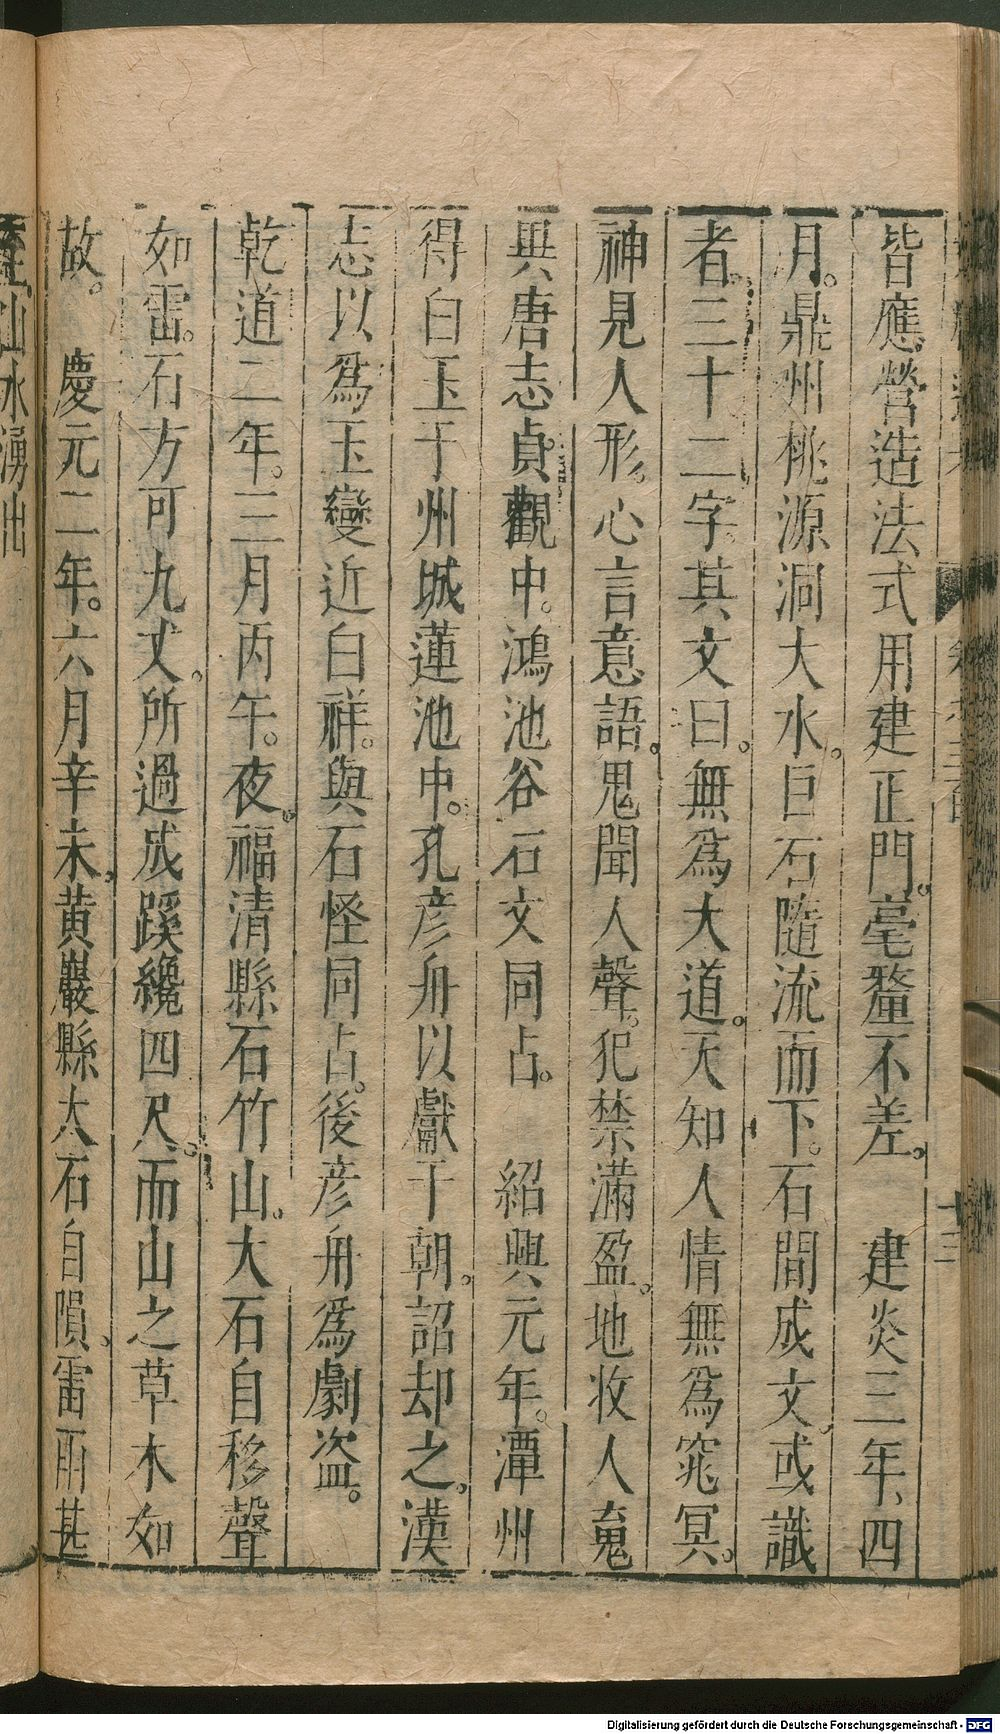 皆應營造法式用建正門。毫釐不差。　建炎三年、四
月。鼎州桃源洞大水。巨石隨流而下。石間成文、或識
者。三十二字。其文曰。無爲大道。天知人情無爲窕冥。
神見人形。心言意語。鬼聞人聲。犯禁滿盈。地收人䰟
與唐志貞觀中。鴻池谷石文同占。　紹興元年。潭州
得白玉于州城蓮池中。孔彦舟以獻于朝。詔却之。漢
志以爲玉變近白祥。與石怪同占。後彦舟爲劇盜。
乾道二年。三月丙午。夜。福清縣石竹山。大石自移聲
如雷。石方可九丈。所過成蹊纔四尺。而山之草木如
故。　慶元二年。六月辛未。黄巖縣大石自隕、雷雨甚
至山水湧出
Digitalisierung gefördert durch die Deutsche Forschungsgemeinschaft - DFG